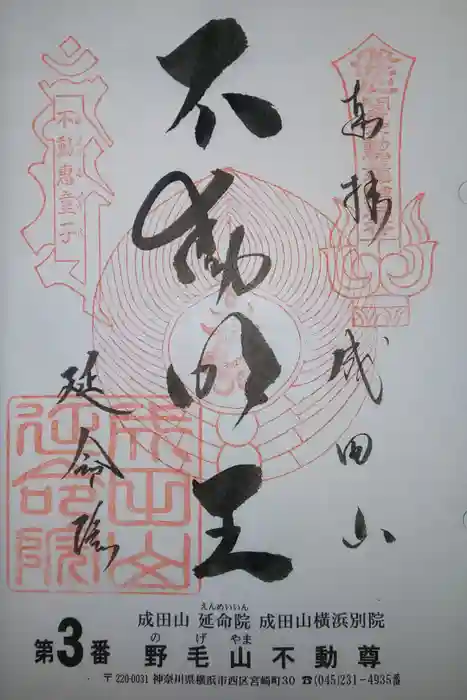 奉拝 成田山
不動明王
延命院
不動恵童子
成田山
延命院
えんめいいん
成田山 延命院 成田山横浜別院
第3番
のげやま
野毛山不動尊
〒220-0031 神奈川県横浜市西区宮崎町30 ☎(045)231-4935番